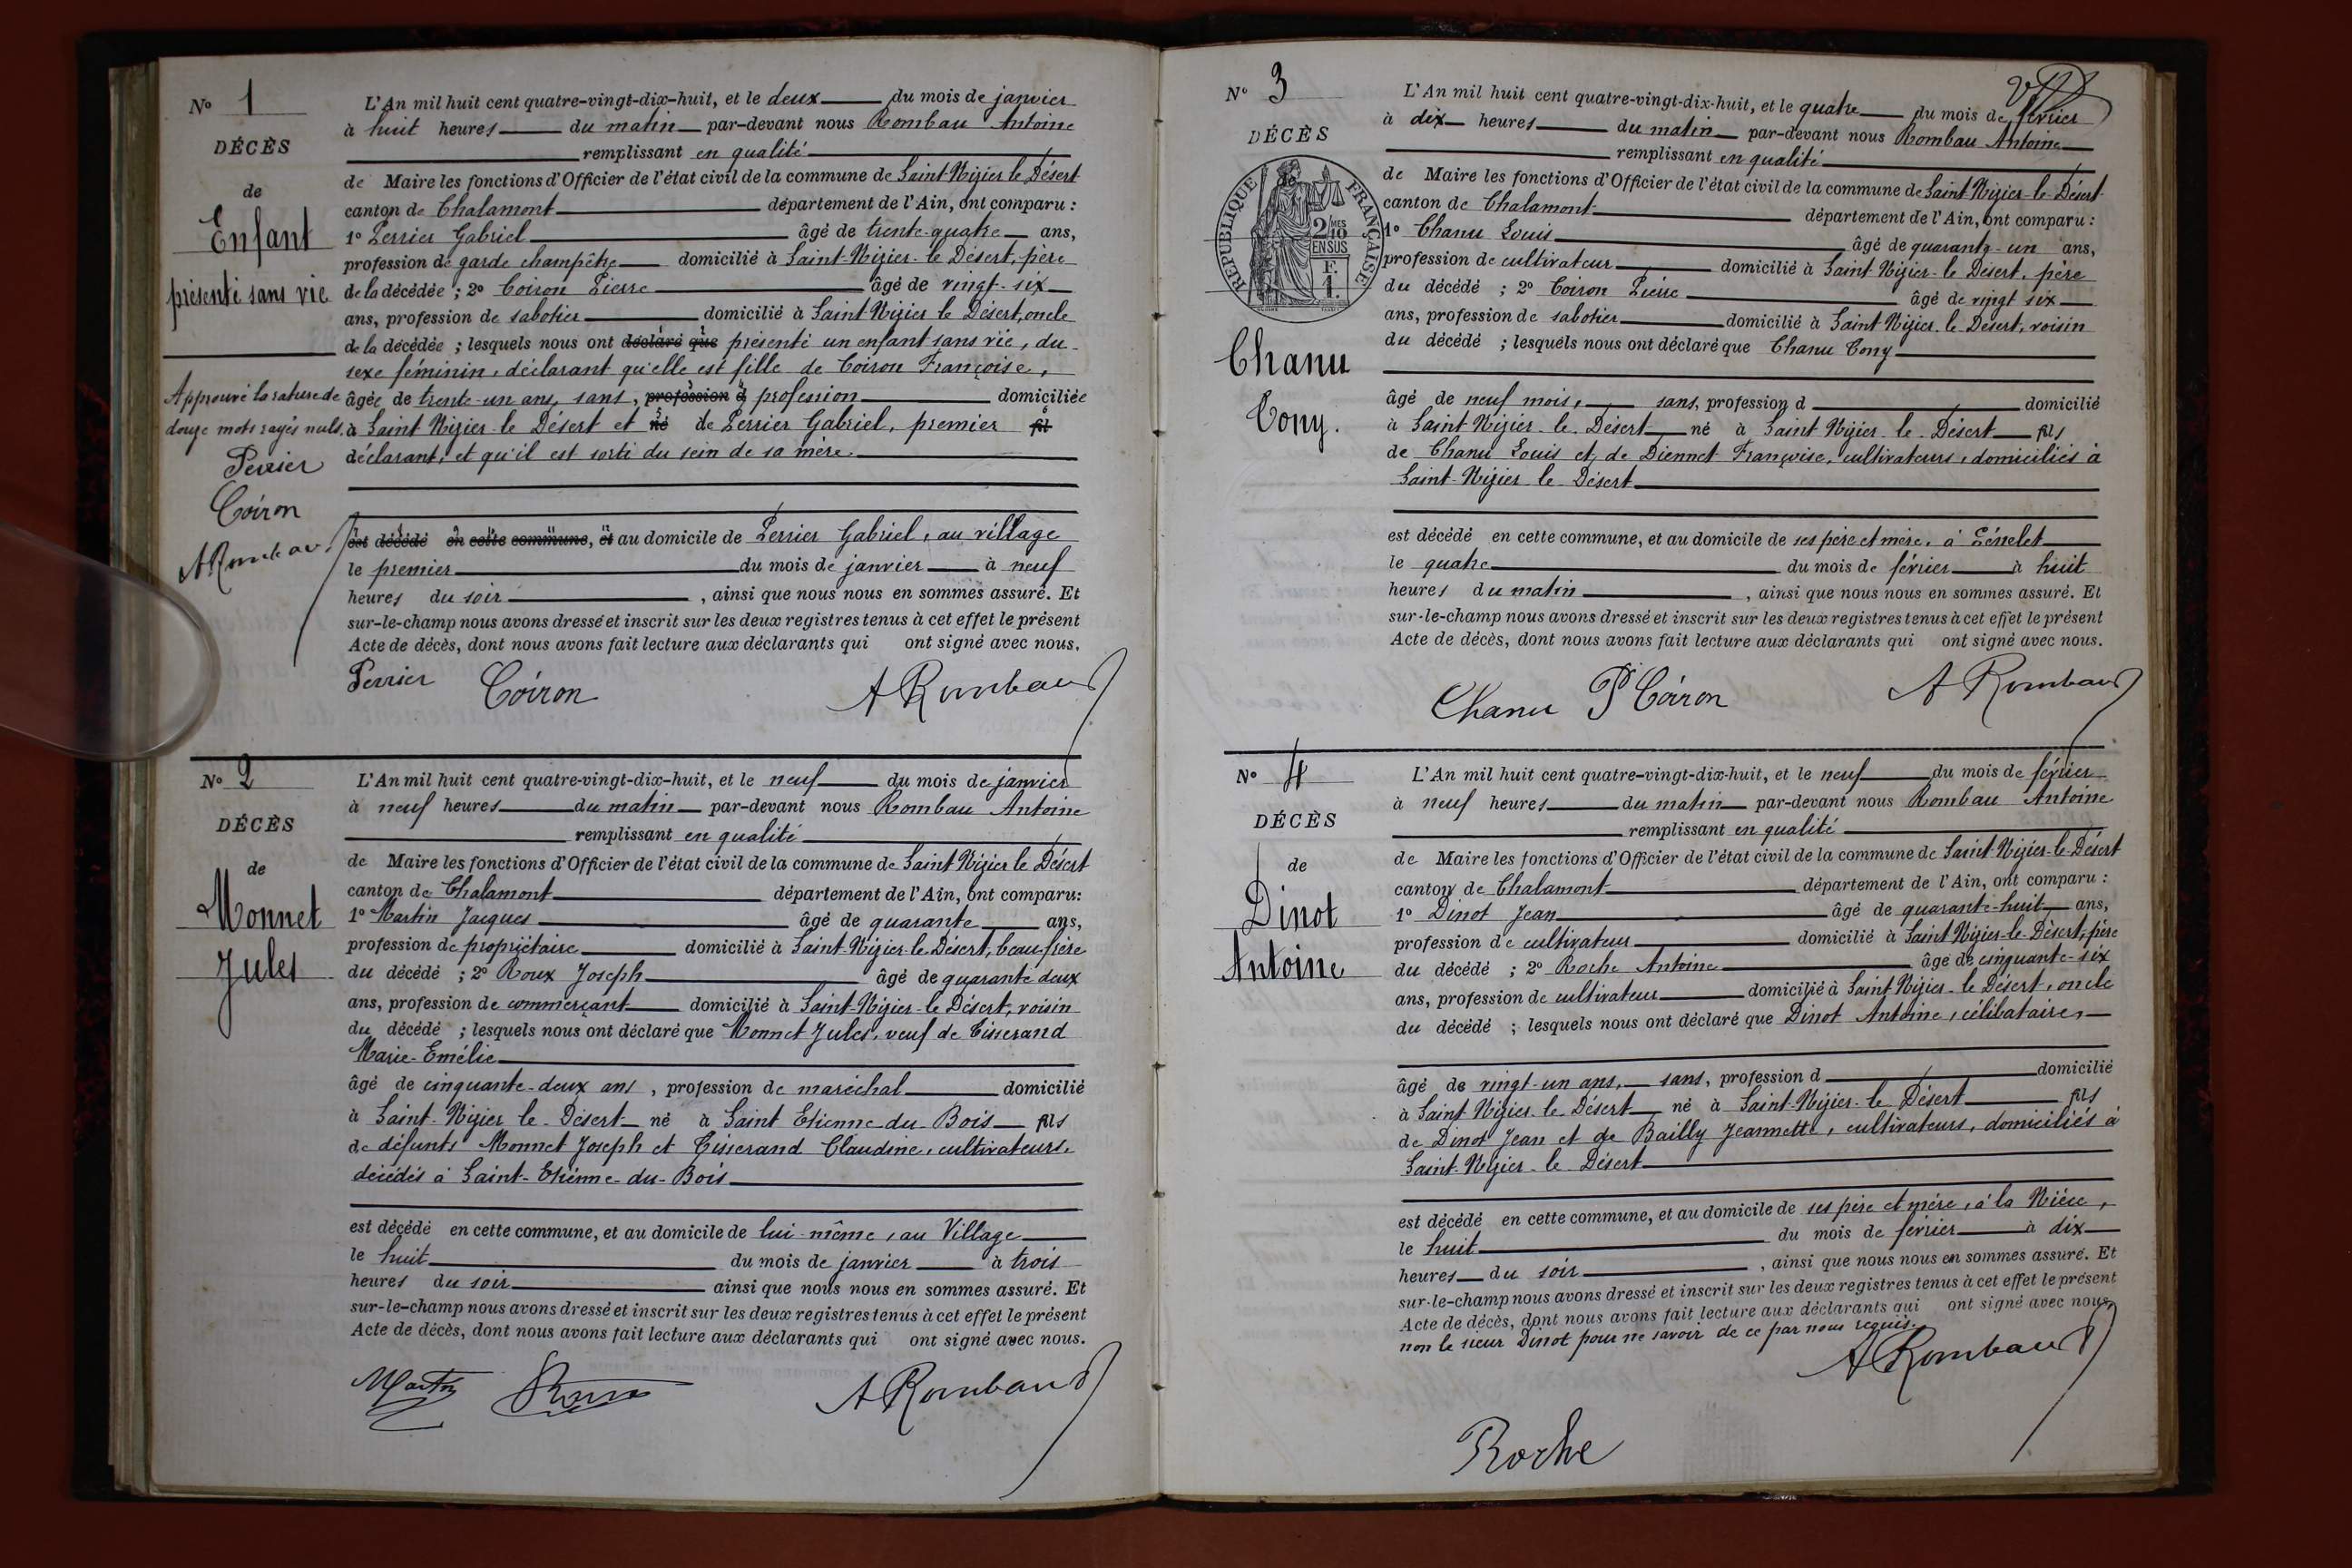 N° 1
DÉCÈS
de
Enfant
présenté sans vie
Approuvé la rature de
douze mots rayés nuls.
Perrier
Coiron
A Rombau
L'An mil huit cent quatre-vingt-dix-huit, et le deux du mois de janvier
à huit heures du matin par-devant nous Rombau Antoine
remplissant en qualité
de Maire les fonctions d'Officier de l'état civil de la commune de Saint Nizier le Désert
canton de Chalamont département de l'Ain, ont comparu :
1° Perrier Gabriel âgé de trente-quatre ans,
profession de garde champêtre domicilié à Saint-Nizier-le Désert, père
de la décédée ; 2° Coiron Pierre âgé de vingt-six
ans, profession de sabotier domicilié à Saint-Nizier le Désert, oncle
de la décédée ; lesquels nous ont déclaré que présenté un enfant sans vie, du
sexe féminin, déclarant qu'elle est fille de Coiron Françoise,
âgée de trente-un ans, sans, profession d profession domiciliée
à Saint Nizier-le Désert et né de Perrier Gabriel, premier fil
déclarant, et qu'il est sorti du sein de sa mère.
est décédé en cette commune, et au domicile de Perrier Gabriel, au village
le premier du mois de janvier à neuf
heures du soir , ainsi que nous nous en sommes assuré. Et
sur-le-champ nous avons dressé et inscrit sur les deux registres tenus à cet effet le présent
Acte de décès, dont nous avons fait lecture aux déclarants qui ont signé avec nous.
Perrier Coiron A Rombau
N° 2
DÉCÈS
de
Monnet
Jules
L'An mil huit cent quatre-vingt-dix-huit, et le neuf du mois de janvier
à neuf heures du matin par-devant nous Rombau Antoine
remplissant en qualité
de Maire les fonctions d'Officier de l'état civil de la commune de Saint Nizier le Désert
canton de Chalamont département de l'Ain, ont comparu:
1° Martin Jacques âgé de quarante ans,
profession de propriétaire domicilié à Saint-Nizier-le-Désert, beau-frère
du décédé ; 2° Roux Joseph âgé de quarante deux
ans, profession de commerçant domicilié à Saint-Nizier-le Désert, voisin
du décédé ; lesquels nous ont déclaré que Monnet Jules, veuf de Tisserand
Marie-Emélie
âgé de cinquante-deux ans , profession de maréchal domicilié
à Saint-Nizier le-Désert né à Saint Etienne-du-Bois fils
de défunts Monnet Joseph et Tisserand Claudine, cultivateurs,
décédés à Saint-Etienne-du-Bois
est décédé en cette commune, et au domicile de lui-même, au Village
le huit du mois de janvier à trois
heures du soir ainsi que nous nous en sommes assuré. Et
sur-le-champ nous avons dressé et inscrit sur les deux registres tenus à cet effet le présent
Acte de décès, dont nous avons fait lecture aux déclarants qui ont signé avec nous.
Martin Roux A Rombau
N° 3
DÉCÈS
de
RÉPUBLIQUE FRANÇAISE
2/10 MES
EN SUS
1 F.
Chanu
Tony.
L'An mil huit cent quatre-vingt-dix-huit, et le quatre du mois de février
à dix heures du matin par-devant nous Rombau Antoine
remplissant en qualité
de Maire les fonctions d'Officier de l'état civil de la commune de Saint-Nizier-le-Désert
canton de Chalamont département de l'Ain, ont comparu :
1° Chanu Louis âgé de quarante-un ans,
profession de cultivateur domicilié à Saint Nizier-le Désert, père
du décédé ; 2° Coiron Pierre âgé de vingt six
ans, profession de sabotier domicilié à Saint Nizier-le Désert, voisin
du décédé ; lesquels nous ont déclaré que Chanu Tony
âgé de neuf mois, sans, profession d domicilié
à Saint Nizier-le-Désert né à Saint Nizier-le-Désert fils
de Chanu Louis et de Diennet Françoise, cultivateurs, domiciliés à
Saint-Nizier-le-Désert
est décédé en cette commune, et au domicile de ses père et mère, à
le quatre du mois de février à huit
heures du matin , ainsi que nous nous en sommes assuré. Et
sur-le-champ nous avons dressé et inscrit sur les deux registres tenus à cet effet le présent
Acte de décès, dont nous avons fait lecture aux déclarants qui ont signé avec nous.
Chanu P Coiron A Rombau
N° 4
DÉCÈS
de
Dinot
Antoine
L'An mil huit cent quatre-vingt-dix-huit, et le neuf du mois de février
à neuf heures du matin par-devant nous Rombau Antoine
remplissant en qualité
de Maire les fonctions d'Officier de l'état civil de la commune de Saint-Nizier-le-Désert
canton de Chalamont département de l'Ain, ont comparu :
1° Dinot Jean âgé de quarante-huit ans,
profession de cultivateur domicilié à Saint Nizier-le-Désert, père
du décédé ; 2° Roche Antoine âgé de cinquante-six
ans, profession de cultivateur domicilié à Saint Nizier-le Désert, oncle
du décédé ; lesquels nous ont déclaré que Dinot Antoine, célibataire,
âgé de vingt-un ans, sans, profession d domicilié
à Saint Nizier-le-Désert né à Saint-Nizier-le Désert fils
de Dinot Jean et de Bailly Jeannette, cultivateurs, domiciliés à
Saint-Nizier-le Désert
est décédé en cette commune, et au domicile de ses père et mère, à la
le huit du mois de février à dix
heures du soir , ainsi que nous nous en sommes assuré. Et
sur-le-champ nous avons dressé et inscrit sur les deux registres tenus à cet effet le présent
Acte de décès, dont nous avons fait lecture aux déclarants qui ont signé avec nous,
non le sieur Dinot pour ne savoir de ce par nous requis.
A Rombau
Roche